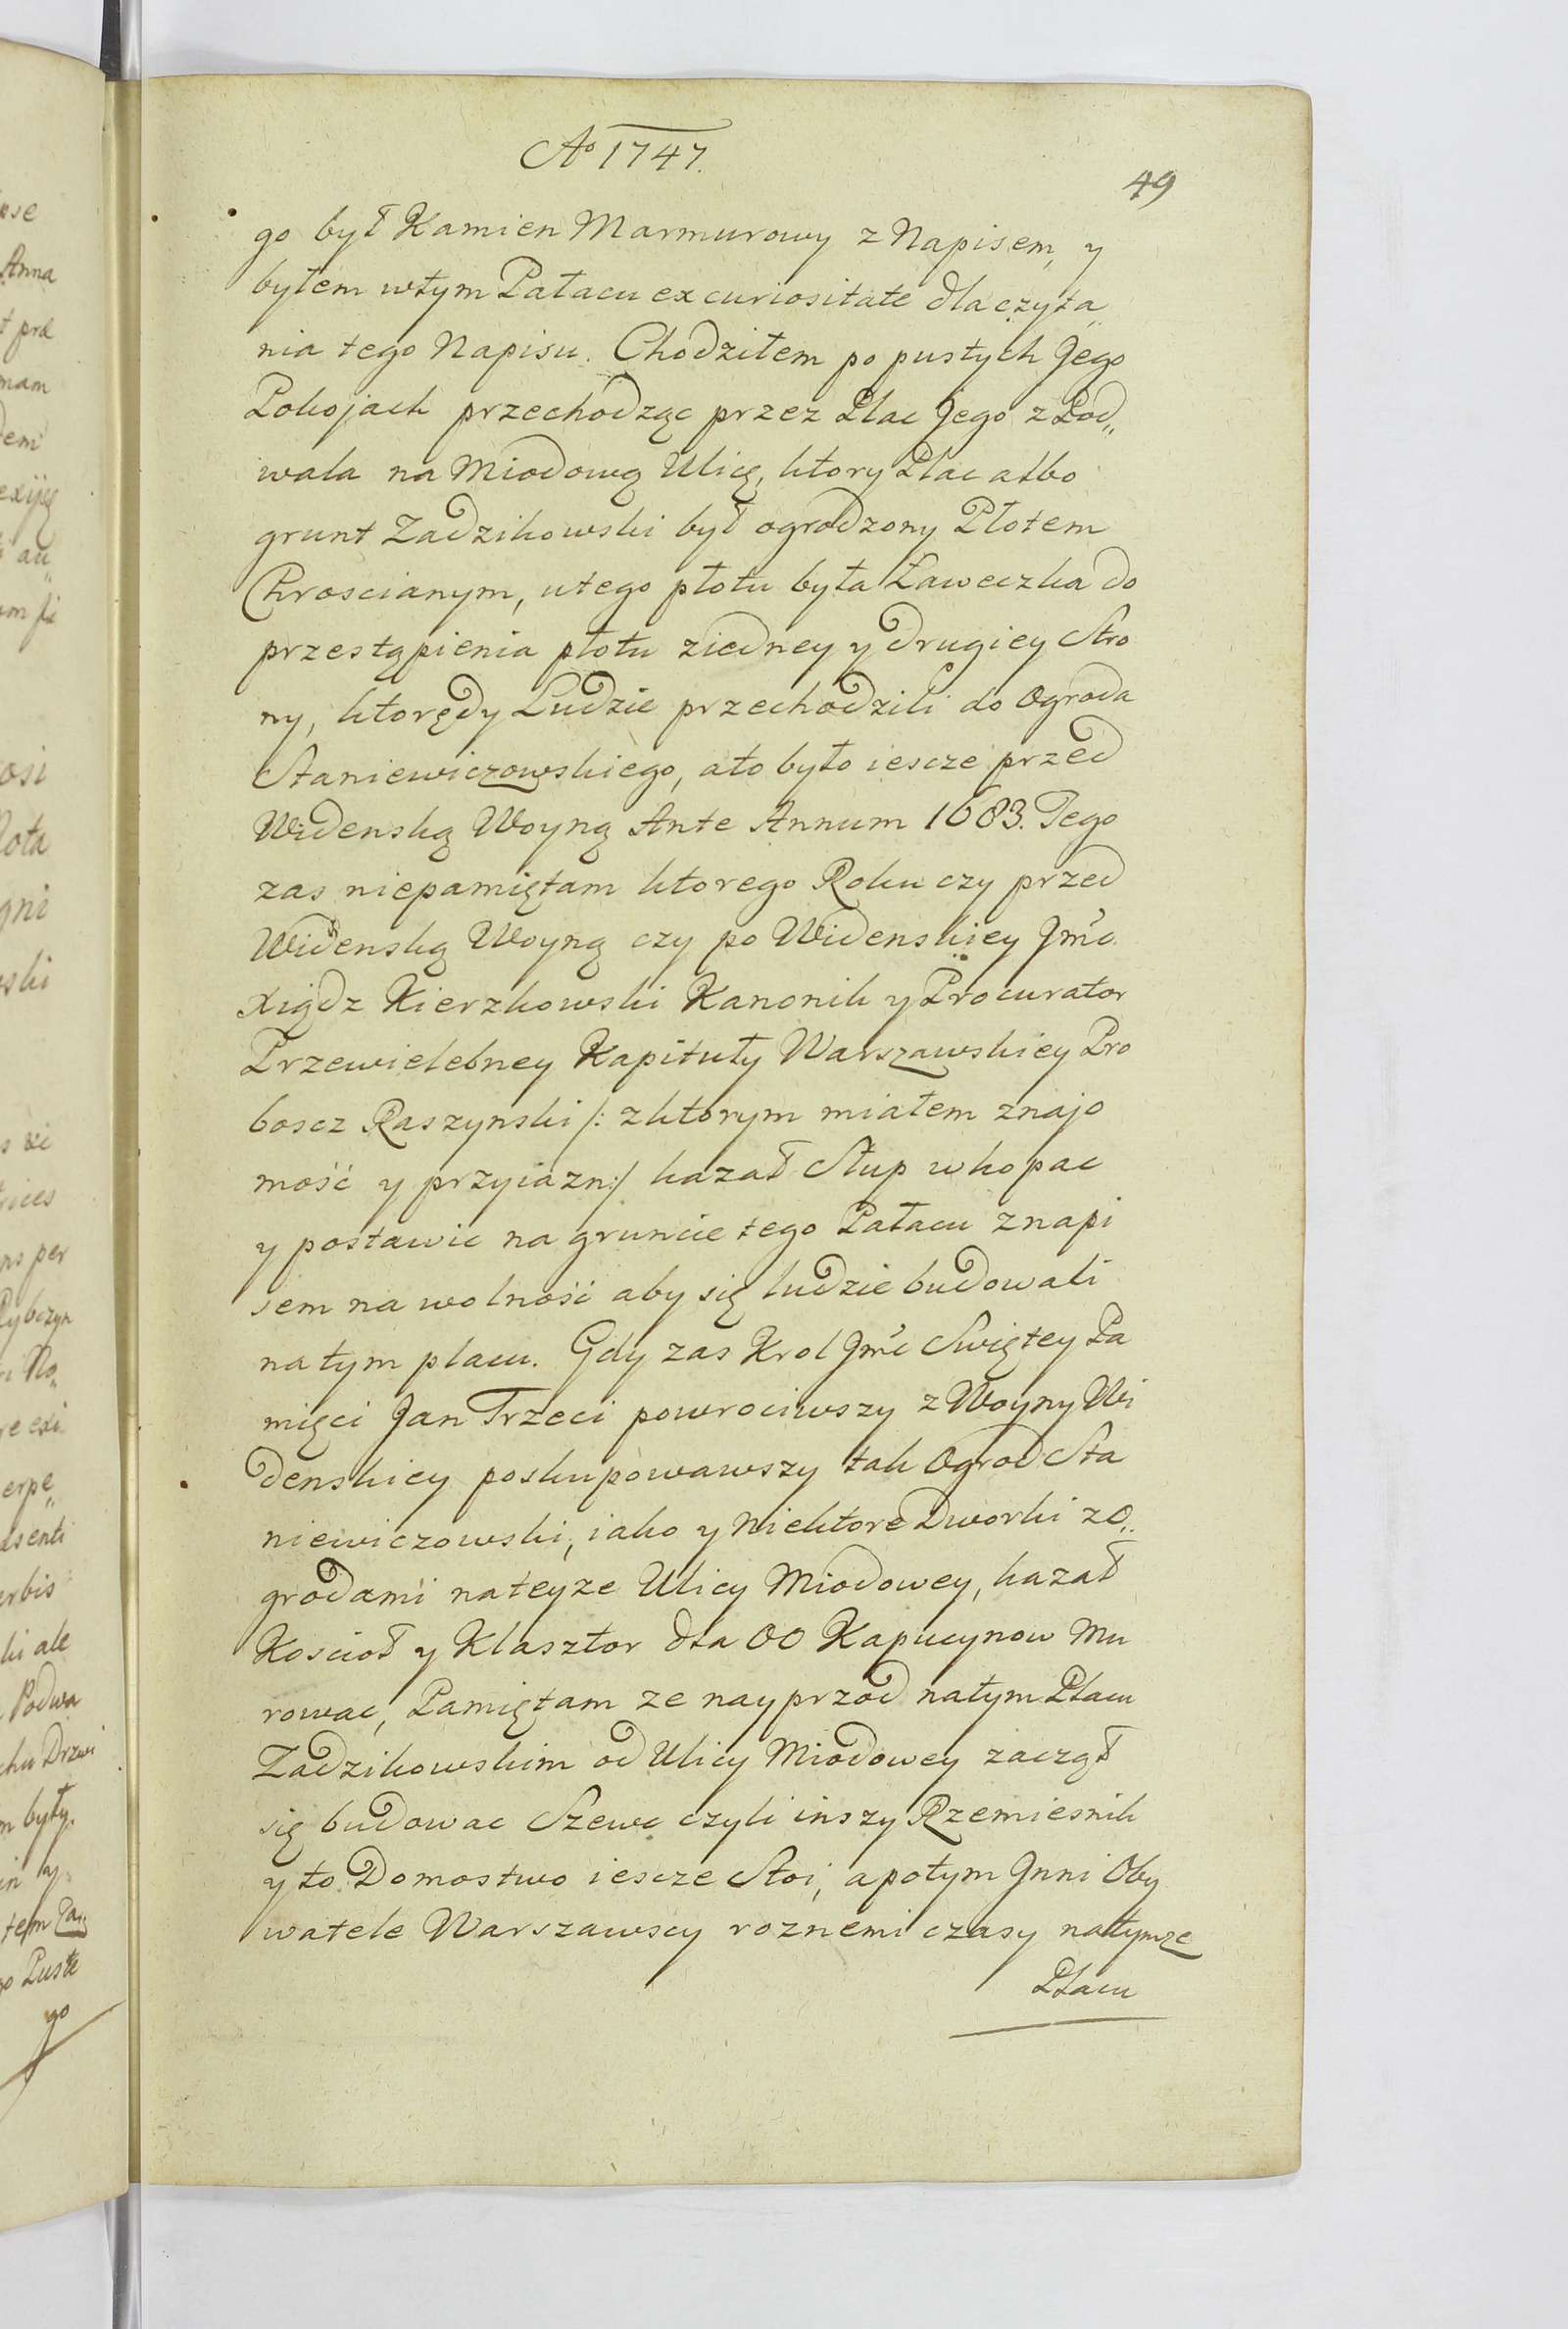 Ao 1747.
49
go był Kamien Marmurowy z Napisem, y
byłem wtym Pałacu ex curiositate dla czyta„
nia tego Napisu. Chodziłem po pustych Jego
Pokojach przechodząc przez Plac Jego z Pod„
wala na Miodową Ulicę, ktory Plac albo
grunt Zadzikowski był ogrodzony Płotem
Chroscianym, utego płotu była Ławeczka do
przestąpienia płotu ziedney y drugiey Stro
ny, ktorędy Ludzie przechodzili do Ogroda
Staniewiczowskiego, ato było iescze przed
Widenską Woyną Ante Annum 1683. Tego
zas niepamiętam ktorego Roku czy przed
Widenską Woyną czy po Widenskiey Jmc
Xiądz Kierzkowski Kanonik y Procurator
Przewielebney Kapituły Warszawskiey Pro
boscz Raszynski /: zktorym miałem znajo
mość y przyiazn:/ kazał Słup wkopac
y postawic na gruncie tego Pałacu znapi
sem na wolność aby się ludzie budowali
natym placu. Gdy zas Krol Jmc Swiętey Pa
mięci Jan Trzeci powrociwszy z Woyny Wi
denskiey poskupowawszy tak Ogrod Sta
niewiczowski, iako y Niektore Dworki zO„
grodami nateyze Ulicy Miodowey, kazał
Kościoł y Klasztor dla OO Kapucynow Mu
rowac, Pamiętam ze nayprzod natym Placu
Zadzikowskim od Ulicy Miodowey zaczął
się budowac Szewc czyli inszy Rzemiesnik
y to Domostwo iescze Stoi, apotym Jnni Oby
watele Warszawscy roznemi czasy natymze
Placu